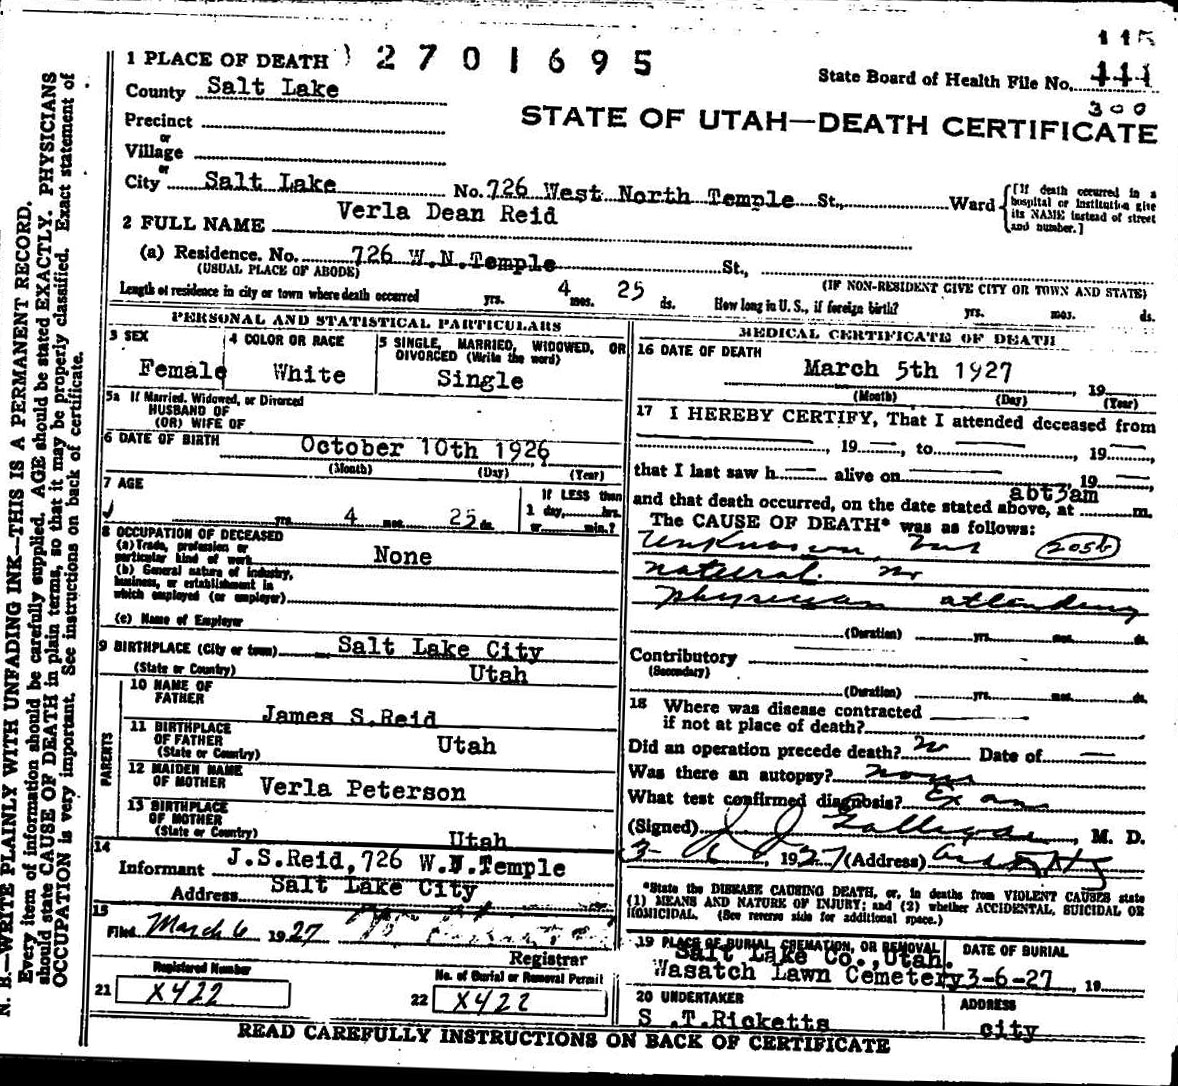 N. B.—WRITE PLAINLY WITH UNFADING INK—THIS IS A PERMANENT RECORD.
Every item of information should be carefully supplied. AGE should be stated EXACTLY. PHYSICIANS
should state CAUSE OF DEATH in plain terms, so that it may be properly classified. Exact statement of
OCCUPATION is very important. See instructions on back of certificate.
115
1 PLACE OF DEATH 2701695
State Board of Health File No. 111
300
County Salt Lake
STATE OF UTAH—DEATH CERTIFICATE
Precinct
or
Village
or
City Salt Lake No. 726 West North Temple St., Ward
[If death occurred in a
hospital or institution give
its NAME instead of street
and number.]
2 FULL NAME Verla Dean Reid
(a) Residence. No. 726 W.N.Temple St.,
(USUAL PLACE OF ABODE) (IF NON-RESIDENT GIVE CITY OR TOWN AND STATE)
Length of residence in city or town where death occurred yrs. 4 mos. 25 ds. How long in U. S., if foreign birth? yrs. mos. ds.
PERSONAL AND STATISTICAL PARTICULARS
3 SEX
Female
4 COLOR OR RACE
White
5 SINGLE, MARRIED, WIDOWED, OR
DIVORCED (Write the word)
Single
5a If Married, Widowed, or Divorced
HUSBAND OF
(OR) WIFE OF
6 DATE OF BIRTH October 10th 1926
(Month) (Day) (Year)
7 AGE
yrs. 4 mos. 25 ds.
If LESS than
1 day, hrs.
or min.?
8 OCCUPATION OF DECEASED
(a) Trade, profession or
particular kind of work None
(b) General nature of industry,
business, or establishment in
which employed (or employer)
(c) Name of Employer
9 BIRTHPLACE (City or town) Salt Lake City
(State or Country) Utah
PARENTS
10 NAME OF
FATHER
James S.Reid
11 BIRTHPLACE
OF FATHER
(State or Country) Utah
12 MAIDEN NAME
OF MOTHER Verla Peterson
13 BIRTHPLACE
OF MOTHER
(State or Country) Utah
14
Informant J.S.Reid,726 W.N.Temple
Address Salt Lake City
15
Filed March 6 1927
Registrar
Registered Number
21 X422
No. of Burial or Removal Permit
22 X422
MEDICAL CERTIFICATE OF DEATH
16 DATE OF DEATH
March 5th 1927, 19
(Month) (Day) (Year)
17 I HEREBY CERTIFY, That I attended deceased from
, 19 , to , 19 ,
that I last saw h alive on 19
abt3am
and that death occurred, on the date stated above, at m.
The CAUSE OF DEATH* was as follows:
Unknown, but 205b
natural. no
physician attending
(Duration) yrs. mos. ds.
Contributory
(Secondary)
(Duration) yrs. mos. ds.
18 Where was disease contracted
if not at place of death?
Did an operation precede death? no Date of
Was there an autopsy? none
What test confirmed diagnosis? Exam
(Signed) , M. D.
3- 6, 1927 (Address)
*State the DISEASE CAUSING DEATH, or, in deaths from VIOLENT CAUSES state
(1) MEANS AND NATURE OF INJURY; and (2) whether ACCIDENTAL, SUICIDAL OR
HOMICIDAL. (See reverse side for additional space.)
19 PLACE OF BURIAL, CREMATION, OR REMOVAL
Salt Lake Co.,Utah.
Wasatch Lawn Cemetery
DATE OF BURIAL
3-6-27 , 19
20 UNDERTAKER
S .T.Ricketts
ADDRESS
city
READ CAREFULLY INSTRUCTIONS ON BACK OF CERTIFICATE